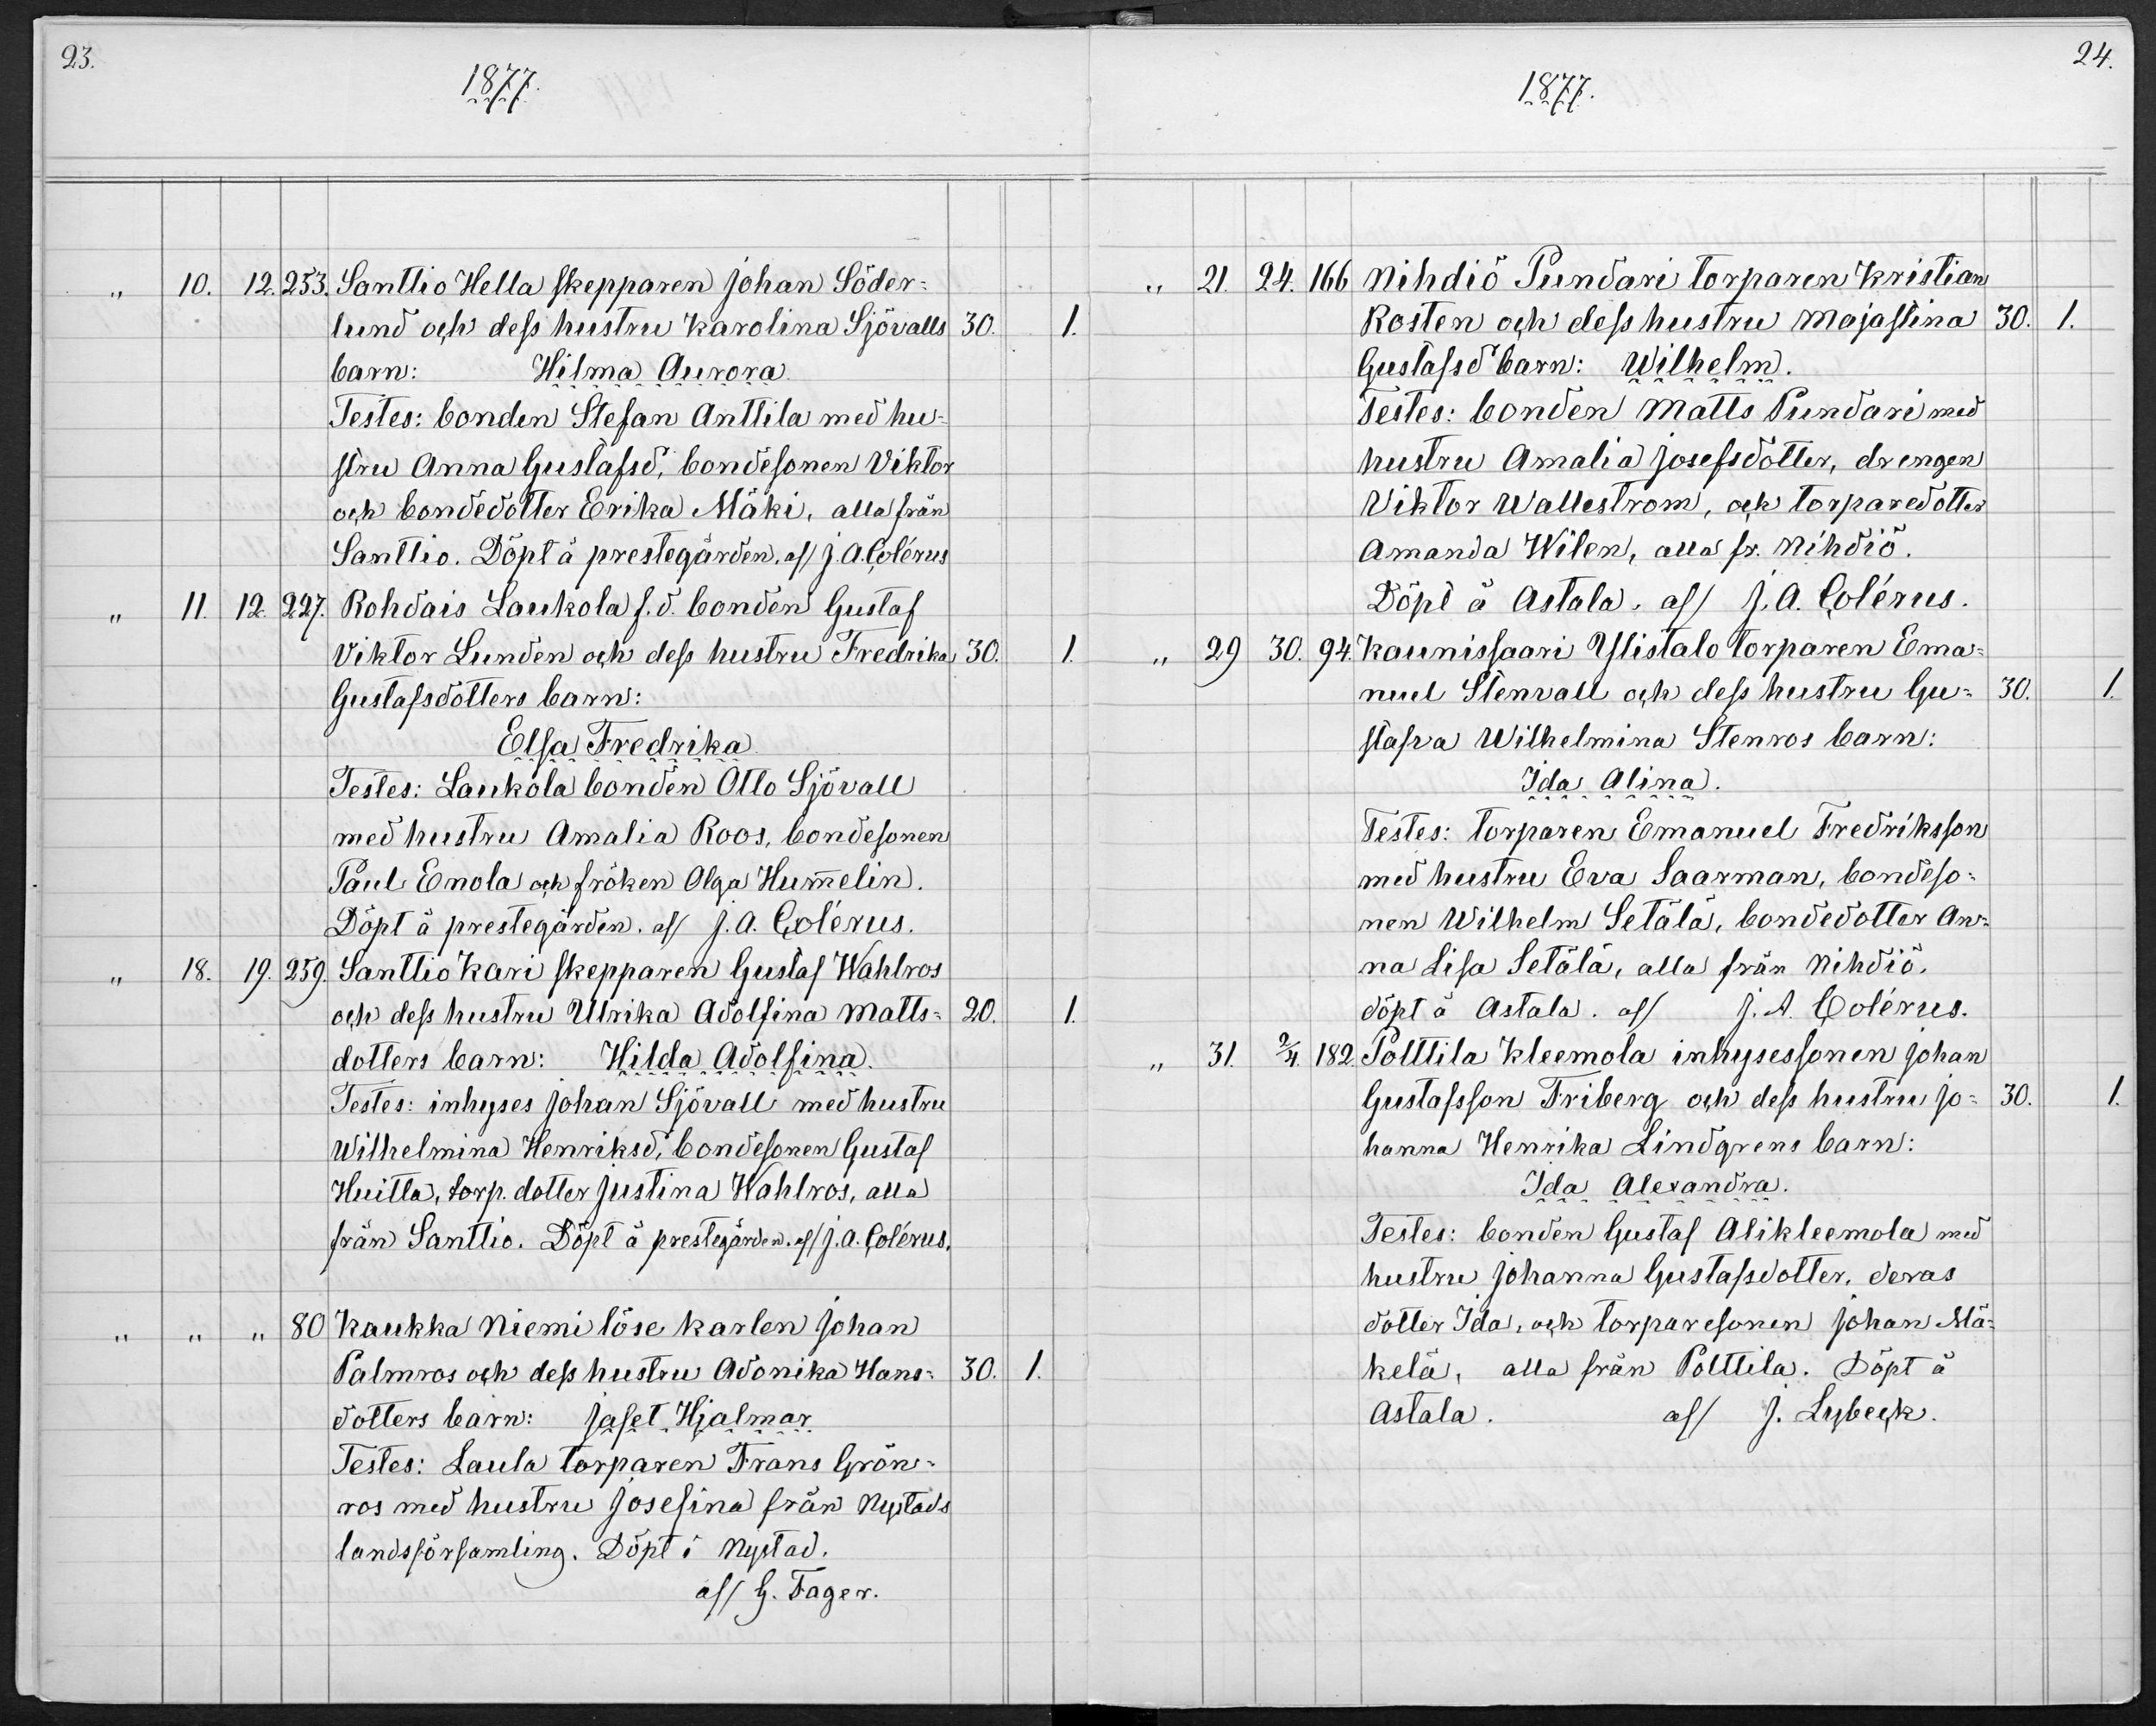 23.
1877.
" 10. 12. 253. Santtio Hella skepparen Johan Söder-
lund och dess hustru Karolina Sjövalls 30. 1.
barn: Hilma Aurora
Testes: bonden Stefan Anttila med hu-
stru Anna Gustafsd., bondesonen Viktor
och bondedotter Erika Mäki, alla från
Santtio. Döpt å prestegården. af/ J. A. Colérus
" 11. 12. 227. Rohdais Laukola f. d. bonden Gustaf
Viktor Lunden och dess hustru Fredrika 30. 1.
Gustafsdotters barn:
Elsa Fredrika
Testes: Laukola bonden Otto Sjövall
med hustru Amalia Roos, bondesonen
Paul Emola och fröken Olga Hum̅elin.
Döpt å prestegården. af/ J. A. Colérus.
" 18. 19. 259. Santtio Kari skepparen Gustaf Wahlros
och dess hustru Ulrika Adolfina Matts- 20. 1.
dotters barn: Hilda Adolfina.
Testes: inhyses Johan Sjövall med hustru
Wilhelmina Henriksd., bondesonen Gustaf
Huitla, torp. dotter Justina Wahlros, alla
från Santtio. Döpt å prestegården. af/ J. A. Colérus.
" " " 80 Kaukka Niemi löse karlen Johan
Palmros och dess hustru Adonika Hans- 30. 1.
dotters barn: Jafet Hjalmar
Testes: Laula torparen Frans Grön-
ros med hustru Josefina från Nystads
landsförsamling. Döpt i Nystad.
af/ G. Fager.
24.
1877.
" 21. 24. 166 Nihdiö Pundari torparen Kristian
Rosten och dess hustru Majastina 30. 1.
Gustafsd barn: Wilhelm.
Testes: bonden Matts Pundari med
hustru Amalia Josefsdotter, drengen
Viktor Wallestrom, och torparedotter
Amanda Wilen, alla fr. Nihdiö.
Döpt å Astala. af/ J. A. Colérus.
" 29 30. 94. Kaunissaari Ylistalo torparen Ema-
nuel Stenvall och dess hustru Gu- 30. 1.
stafva Wilhelmina Stenros barn:
Ida Alina.
Testes: torparen Emanuel Fredriksson
med hustru Eva Saarman, bondeso-
nen Wilhelm Setälä, bondedotter An-
na Lisa Setälä, alla från Nihdiö.
döpt å Astala. af/ J. A. Colérus.
" 31. 2/4. 182. Polttila Kleemola inhysessonen Johan
Gustafsson Friberg och dess hustru Jo- 30. 1.
hanna Henrika Lindgrens barn:
Ida Alexandra.
Testes: bonden Gustaf Alikleemola med
hustru Johanna Gustafsdotter, deras
dotter Ida, och torparesonen Johan Mä-
kelä, alla från Polttila. Döpt å
Astala. af/ J. Lybeck.